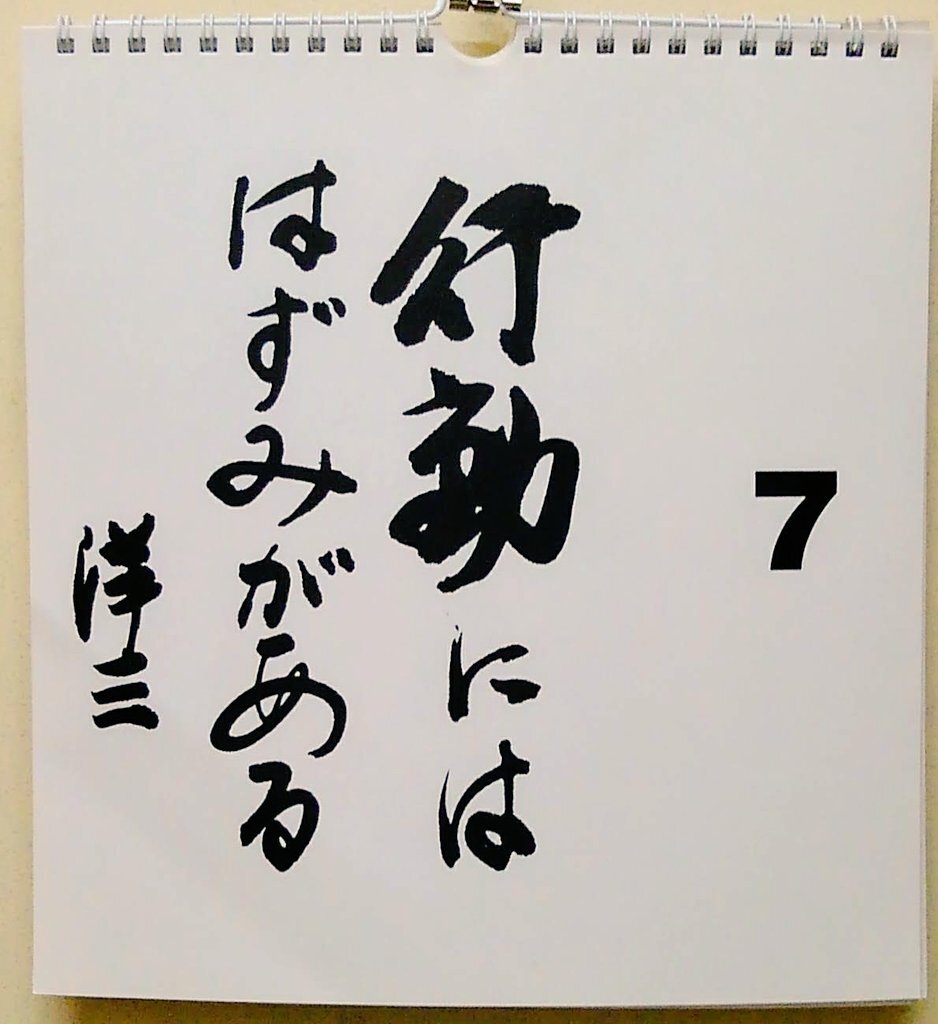 7
行動には
はずみがある
洋三